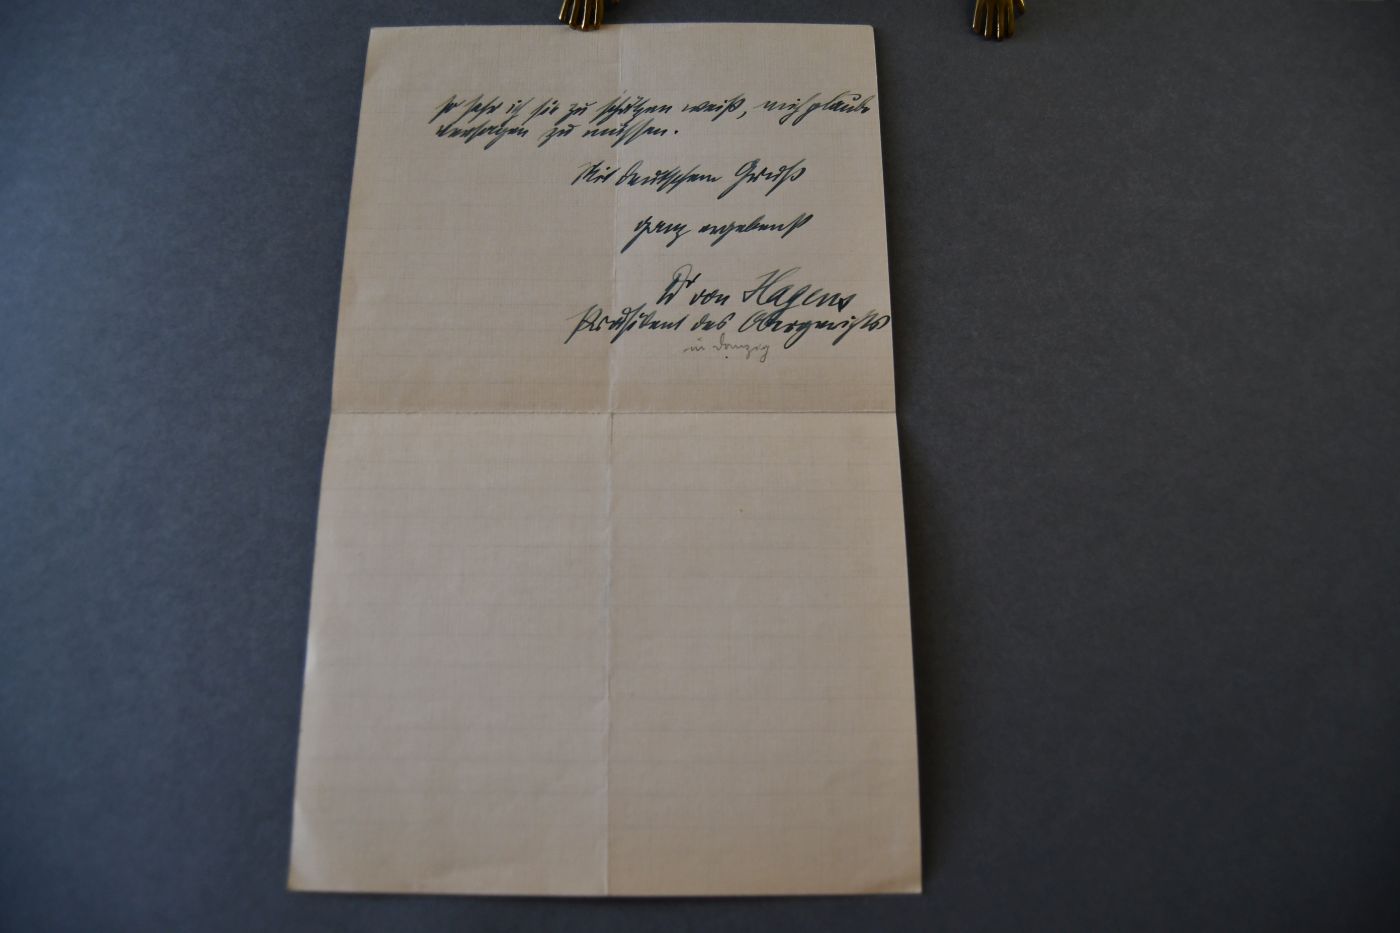 so sehr ich sie zu schätzen weiß, mich glaube
versagen zu müssen.
Mit deutschem Gruß
ganz ergebenst
Dr von Hagens
Präsident des Obergerichts
in Danzig